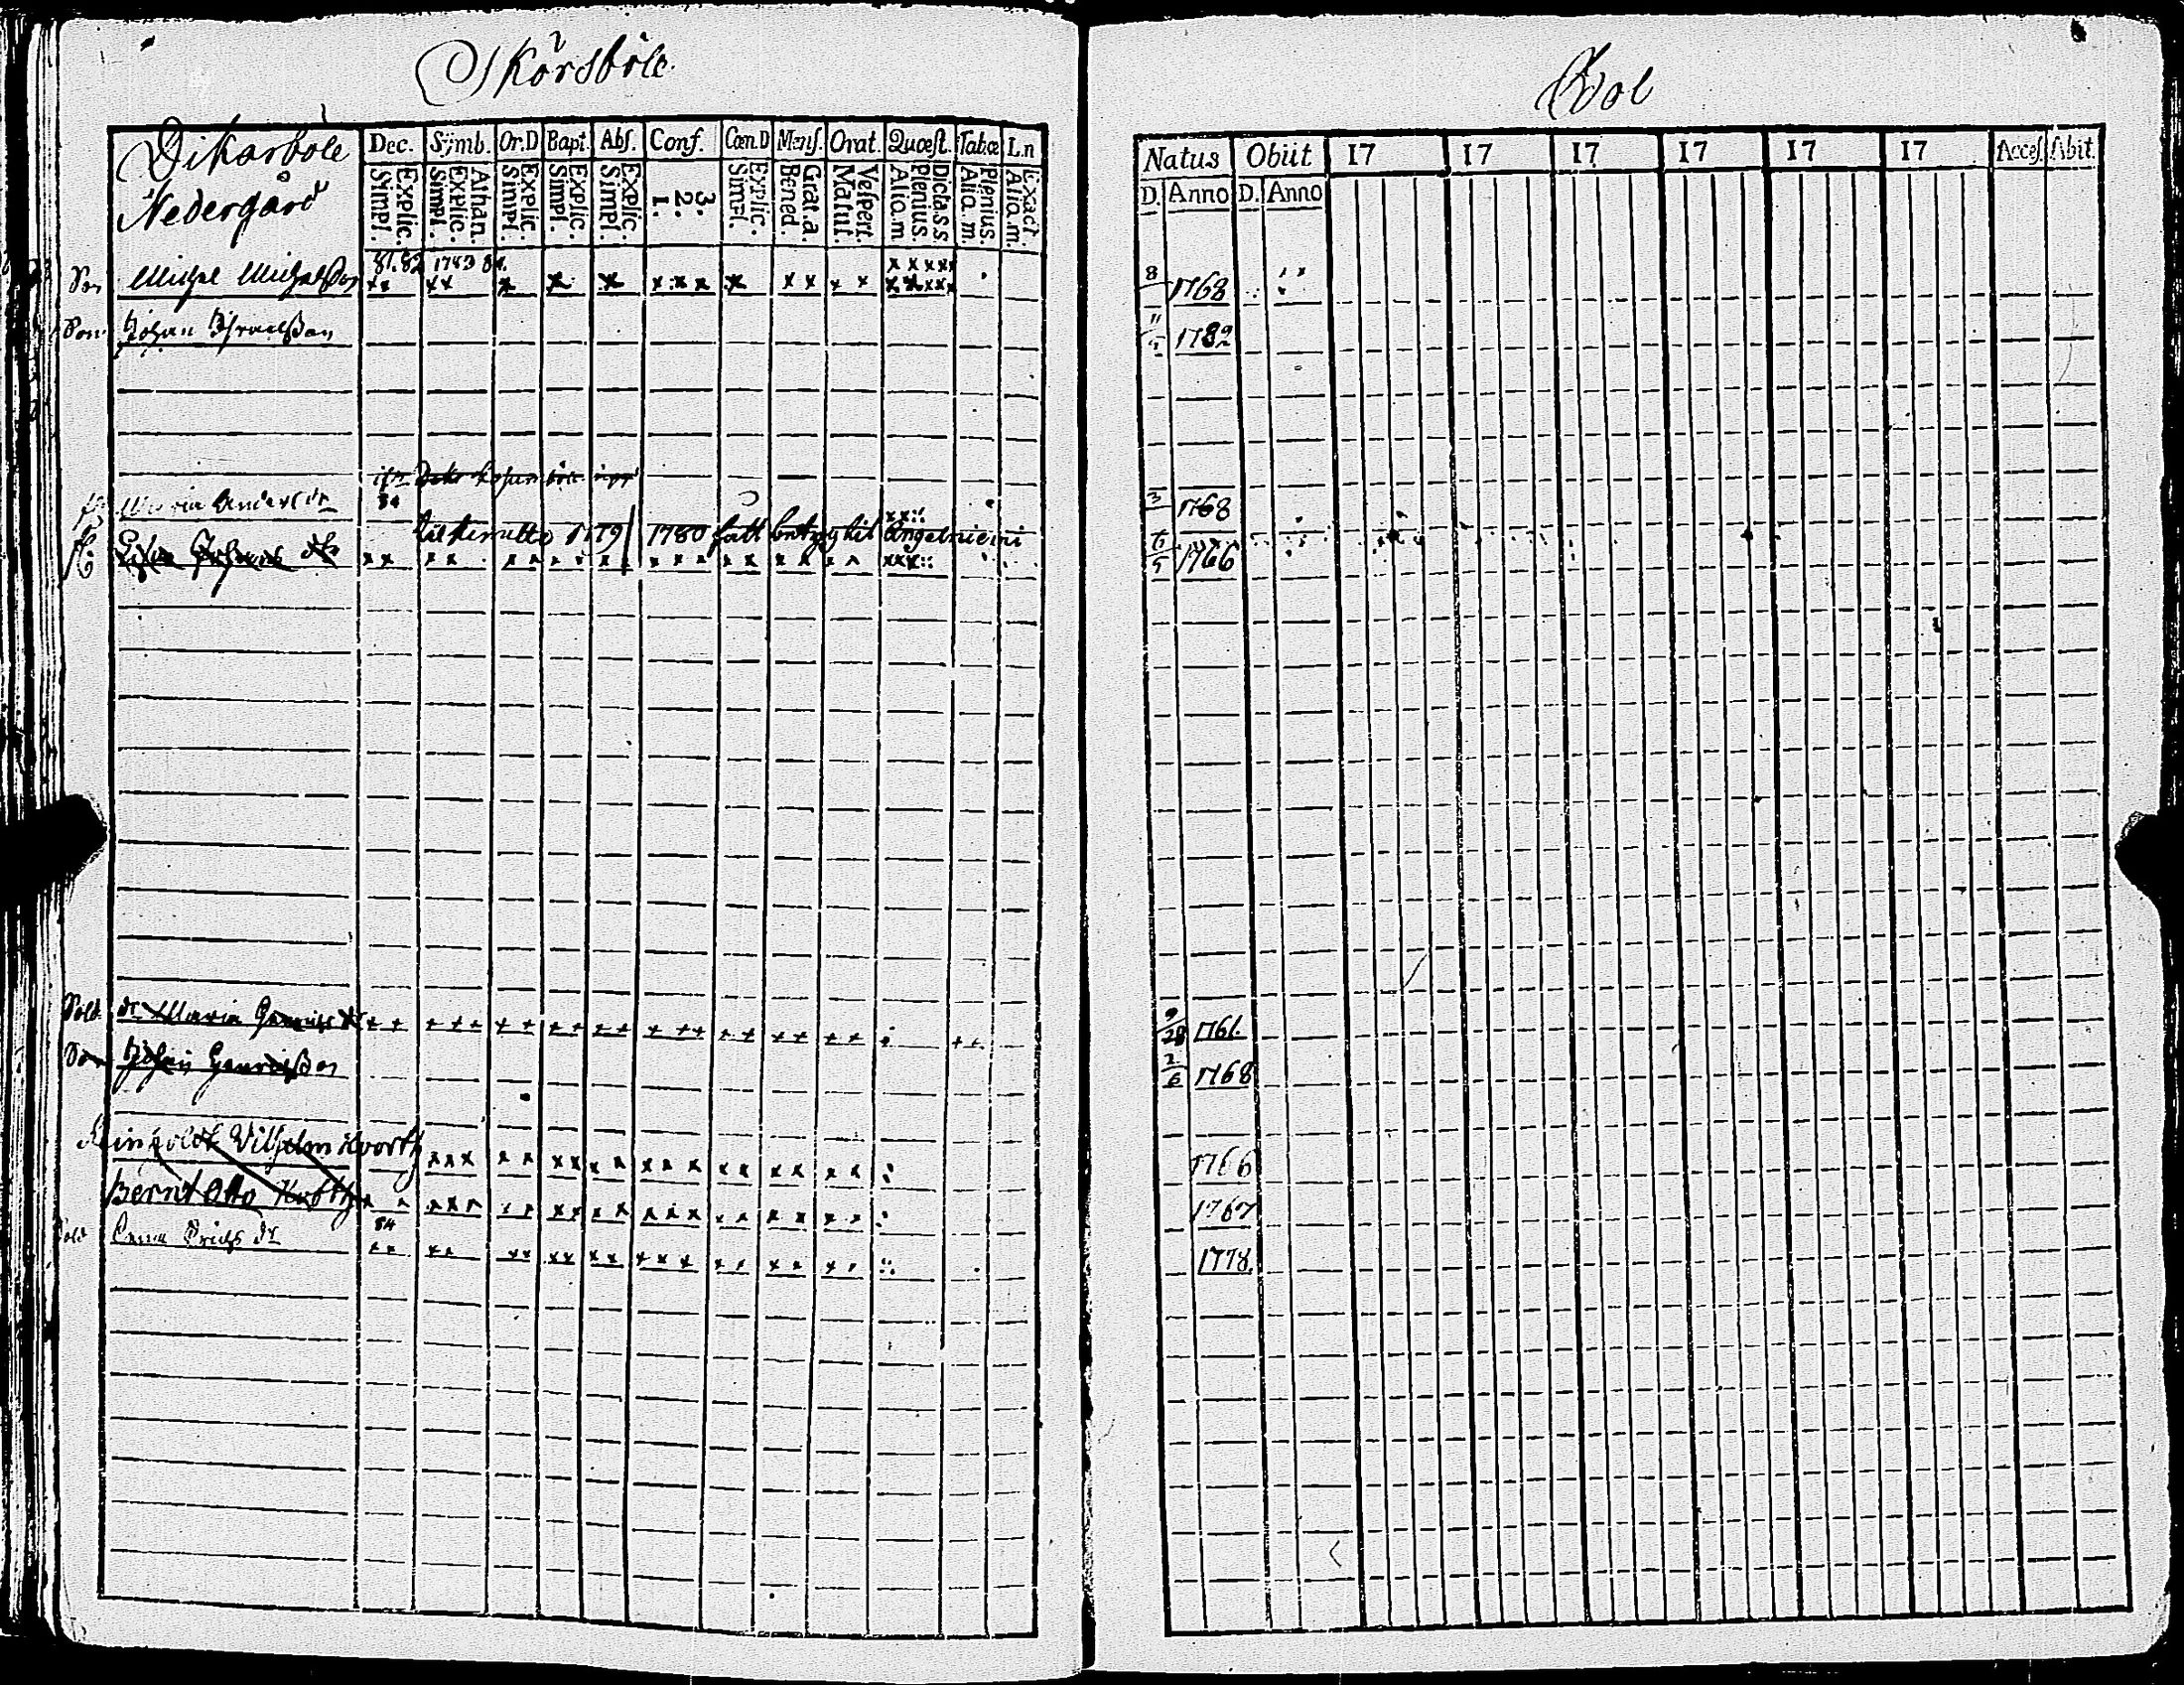 Skörsböle
Bol
Dikarböle
Nedergård
Dec. Sijmb. Or.D Bapt. Abs. Conf. Cœn D Mens. Orat. Quæst. Tabæ Ln
Explic. Simpl. Athan. Explic. Simpl. Explic. Simpl. Explic. Simpl. Explic. Simpl. 3. 2. 1. Explic. Simpl. Grat.a. Bened. Vespert. Matut. Dicta.s.s Plenius. Alio.m Plenius. Alia.m. Exact. Alio.m.
Natus Obiit 17 17 17 17 17 17 Acces. Abit.
D. Anno D. Anno
81.82 1783 84.
Son Michel Michelsson x x x x x x x x x x x x x 8 1768
Son Johan Israelsson 11 1782
Maria Anders dr 84 3 1768
1779 1780 fått betyg til Ängelniemi
Johans dr x x x x x x x x x x x x x x x x x x 6/5 1766
dr Maria Henrichs dr x x x x x x x x x x x x x x x x x x x x 9/28 1761.
Son Johan Henrichsson 2/6 1768
Reinholdt Vilhelm x x x x x x x x x x x x x x x x x x 1766
Bernt Otto x x x x x x x x x x x x x x x x x x 1767
84
Erichs dr x x x x x x x x x x x x x x x x x x x 1778.